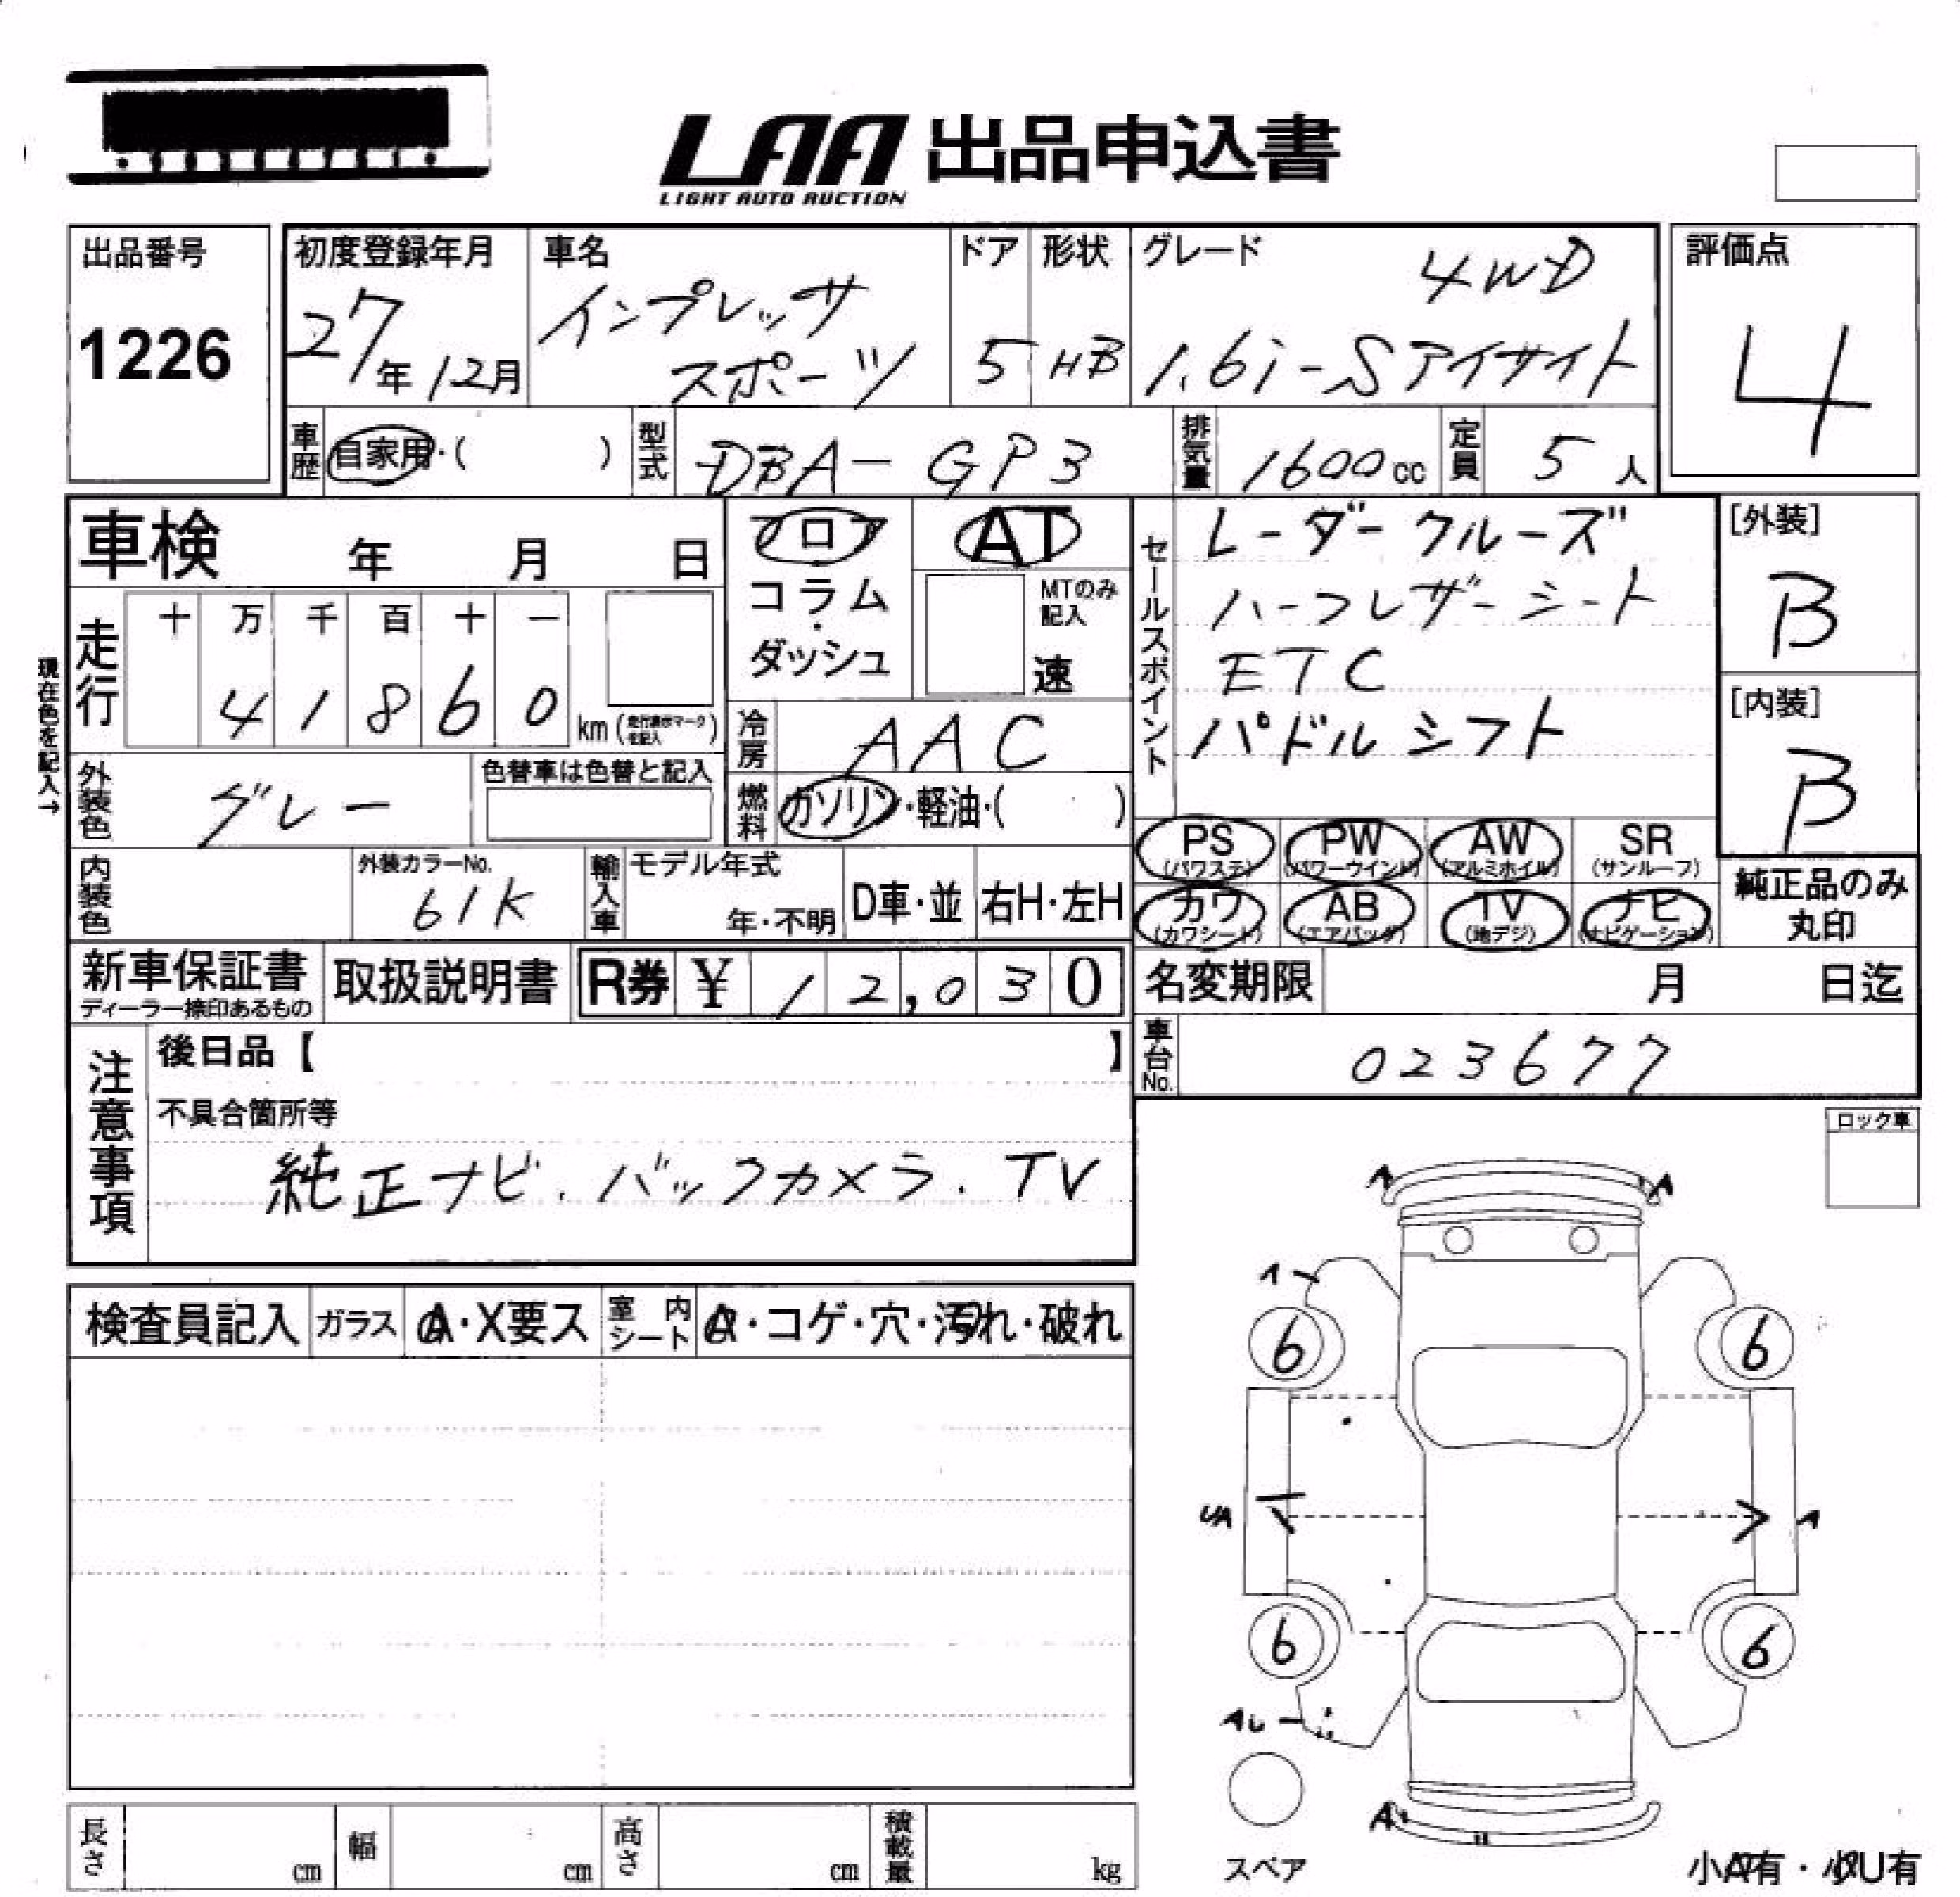 LAA 出品申込書
LIGHT AUTO AUCTION
出品番号
1226
初度登録年月
27年12月
車名
インプレッサ
スポーツ
ドア
5
形状
HB
グレード
4WD
1.6i-Sアイサイト
評価点
4
車歴
自家用・( )
型式
DBA-GP3
排気量
1600cc
定員
5人
車検 年 月 日
フロア
コラム
・
ダッシュ
AT
MTのみ
記入
速
セールスポイント
レーダークルーズ
ハーフレザーシート
ETC
パドルシフト
[外装]
B
[内装]
B
現在色を記入→
走行
十 万 千 百 十 一
4 1 8 6 0
km(走行表示マーク を記入)
冷房
AAC
外装色
グレー
色替車は色替と記入
燃料
ガソリン・軽油・( )
PS
(パワステ)
PW
(パワーウインド)
AW
(アルミホイル)
SR
(サンルーフ)
カワ
(カワシート)
AB
(エアバッグ)
TV
(地デジ)
ナビ
(ナビゲーション)
純正品のみ
丸印
内装色
外装カラーNo.
61K
輸入車
モデル年式
年・不明
D車・並
右H・左H
新車保証書
ディーラー捺印あるもの
取扱説明書
R券 ¥ 12,030
名変期限 月 日迄
車台No.
023677
注意事項
後日品【 】
不具合箇所等
純正ナビ.バックカメラ.TV
ロック車
検査員記入
ガラス
A・X要ス
室内
シート
A・コゲ・穴・汚れ・破れ
A
A
A
6
6
UA
A
6
6
AU
A
スペア
小A有・小U有
長さ
cm
幅
cm
高さ
cm
積載量
kg